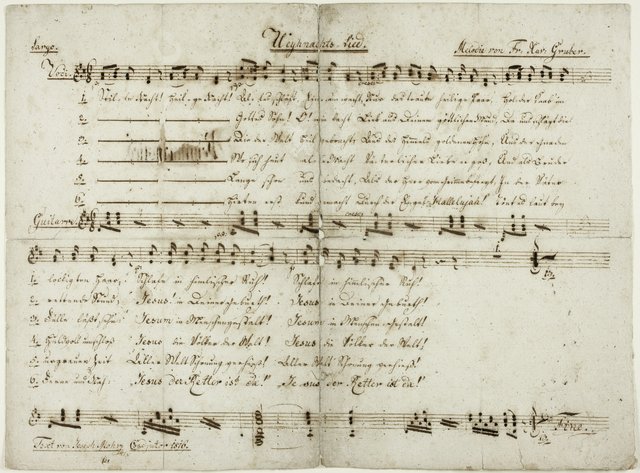 Weyhnachts-Lied.
Largo. Melodie von Fr. Xav. Gruber.
Voci.
1. Stille Nacht! Heilige Nacht! Alles schläft. Eynsam wacht. Nur das traute heilige Paar. Holder Knab' im
2. Gottes Sohn! O! wie lacht Lieb' aus Deinem göttlichen Mund, Da uns schlägt die
3. Die der Welt Heil gebracht, Aus des Himmels goldenen Höhn, Uns der Gnaden
4. Wo sich heut alle Macht Väterlicher Liebe ergoß, Und als Bruder
5. Lange schon uns bedacht, Als der Herr vom Grimme befreyt, In der Väter
6. Hirten erst kundgemacht Durch der Engel Hallelujah! Tönt es laut bey
Guitarre.
1. lockigten Haar; Schlafe in himmlischer Ruh! Schlafe in himmlischer Ruh!
2. rettende Stund. Jesus! in Deiner Geburth! Jesus in Deiner Geburth!
3. Fülle läßt seh'n: Jesum in Menschengestalt! Jesum in Menschengestalt!
4. huldvoll umschloß Jesus die Völker der Welt! Jesus die Völker der Welt!
5. urgrauer Zeit Aller Welt Schonung verhieß! Aller Welt Schonung verhieß!
6. Ferne und Nah: Jesus der Retter ist da! Jesus der Retter ist da!
Fine.
Text von Joseph Mohr Coadjutor 1816.